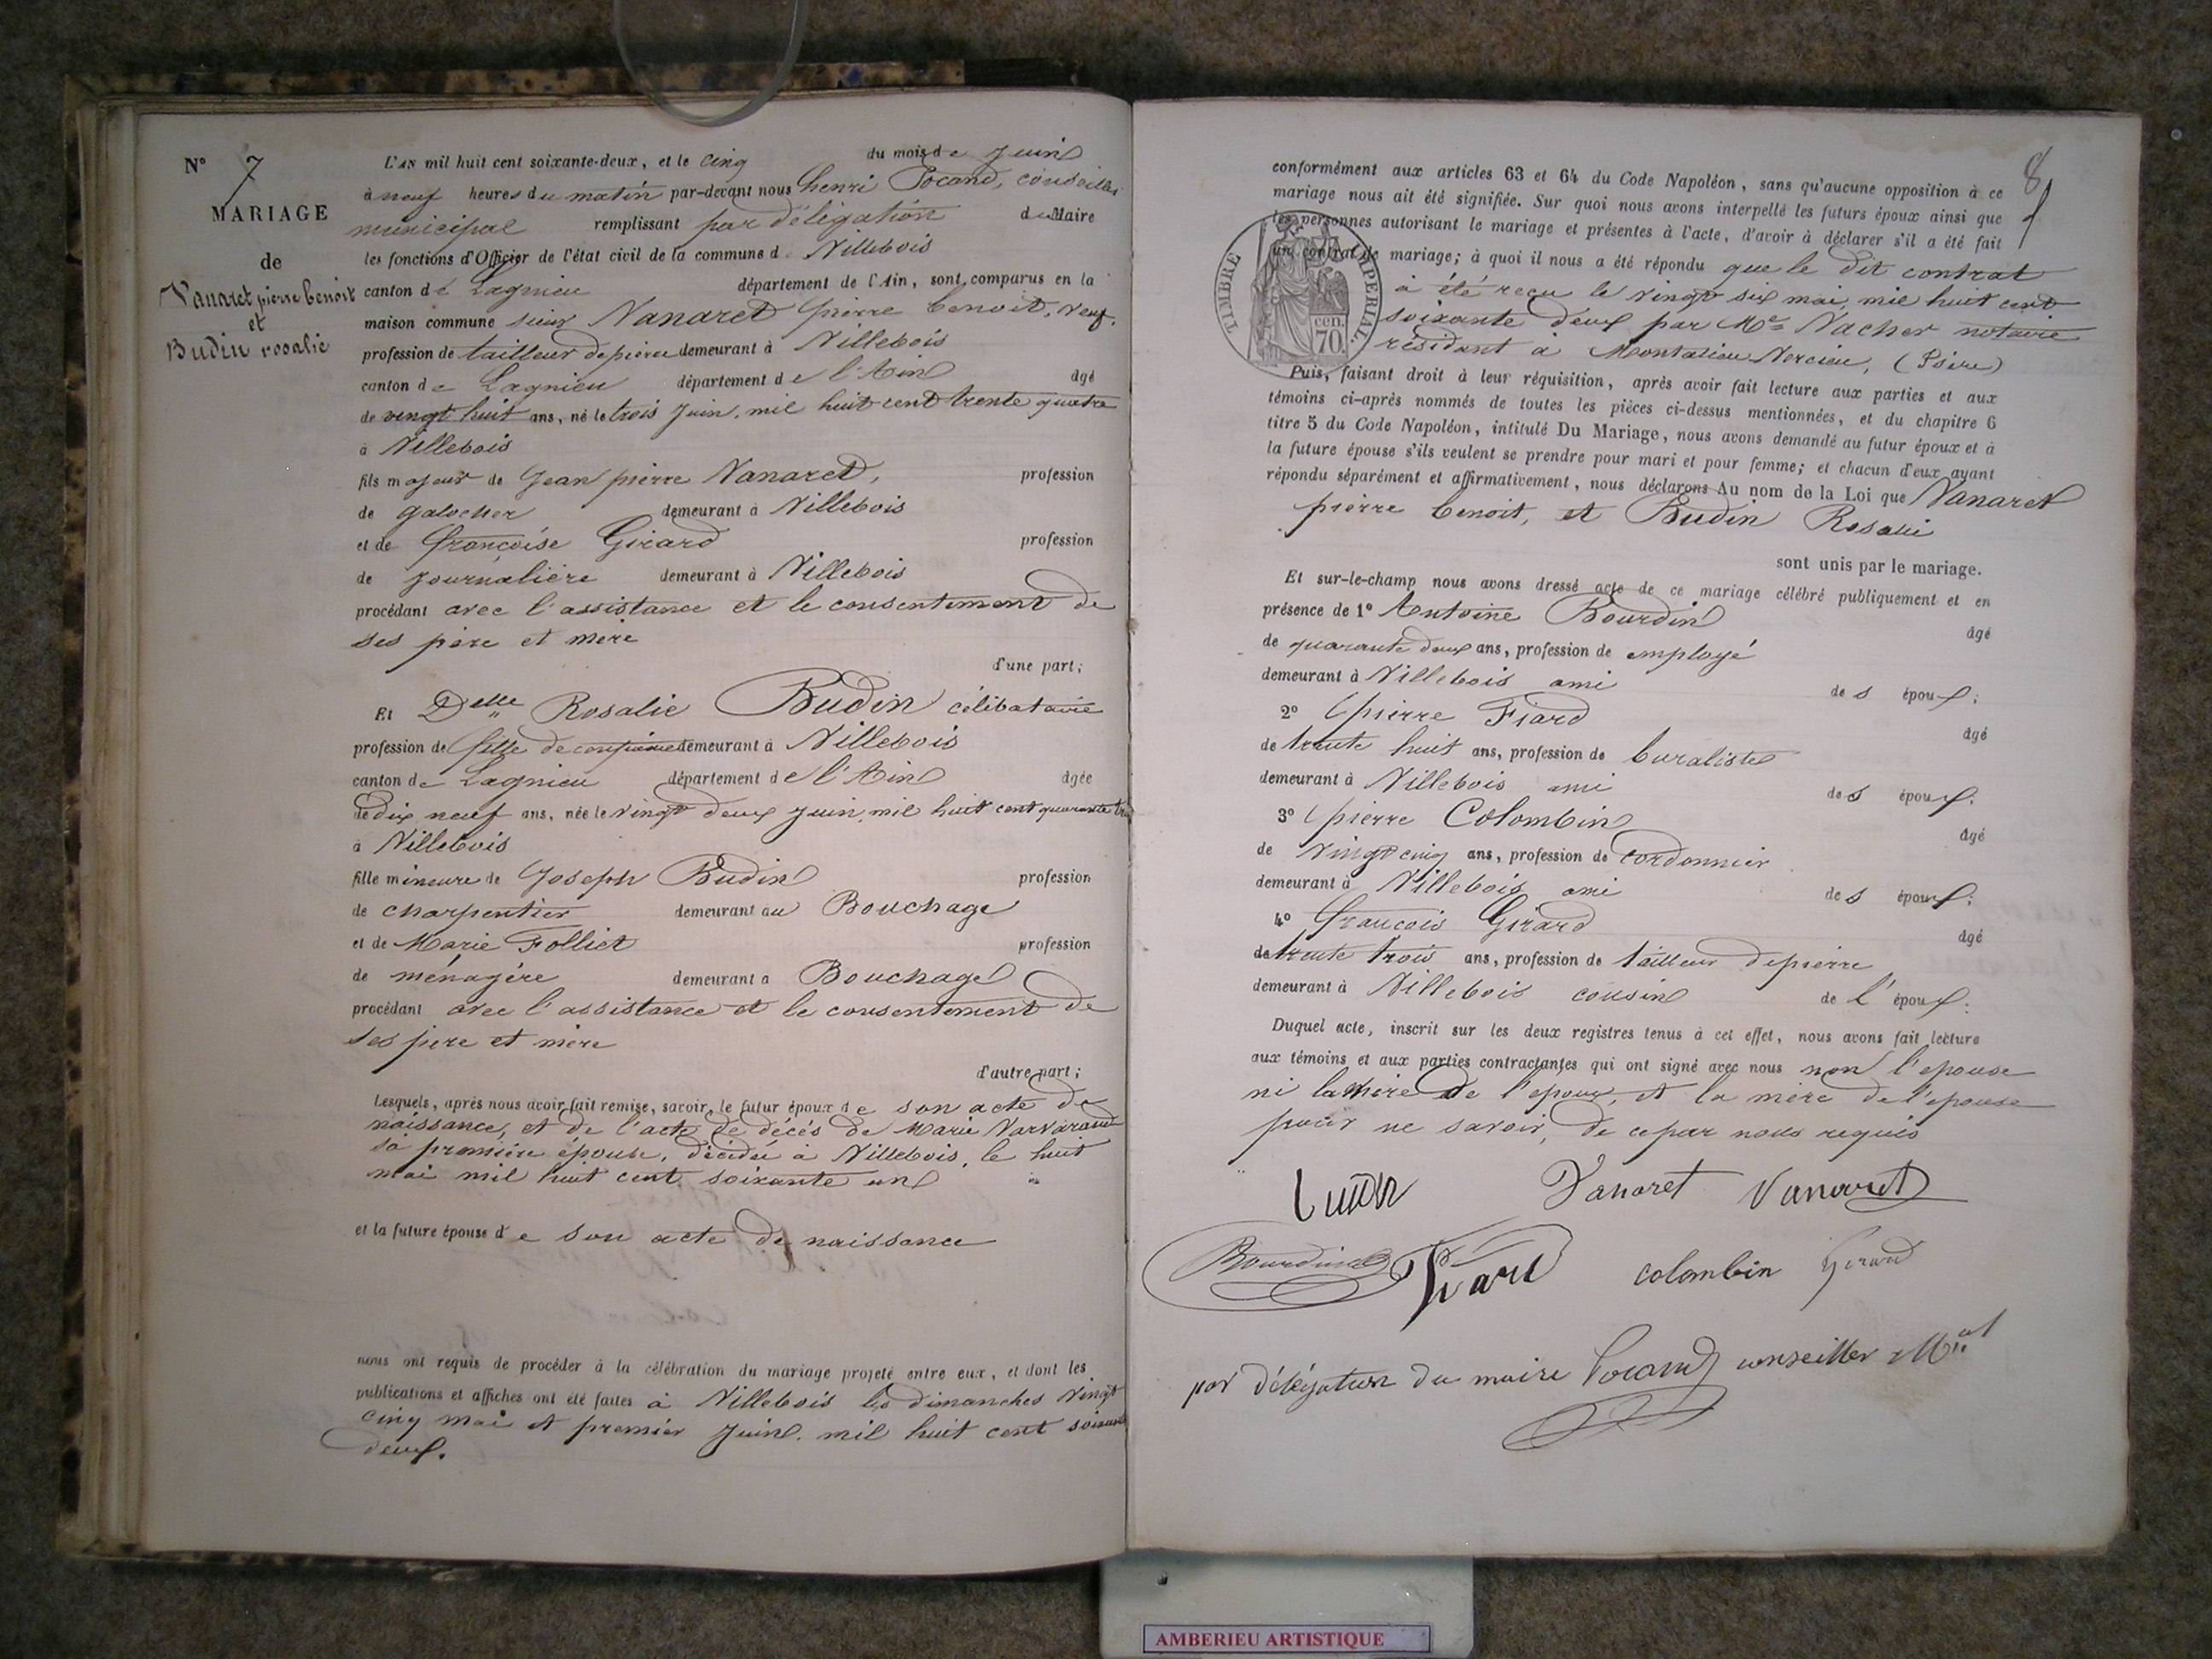 N° 7
MARIAGE
de
Vanaret pierre benoit
et
Budin rosalie
L'AN mil huit cent soixante-deux, et le cinq du mois de juin
à neuf heures du matin par-devant nous henri Pocand, conseiller
municipal remplissant par délégation du Maire
les fonctions d'Officier de l'état civil de la commune d Villebois
canton de Lagnieu département de l'Ain, sont comparus en la
maison commune sieur Vanaret pierre benoit, veuf,
profession de tailleur de pierre demeurant à Villebois
canton de Lagnieu département de l'Ain âgé
de vingt huit ans, né le trois juin, mil huit cent trente quatre
à Villebois
fils majeur de Jean pierre Vanaret, profession
de galocher demeurant à Villebois
et de françoise Girard profession
de journalière demeurant à Villebois
procédant avec l'assistance et le consentement de
ses père et mère
d'une part;
Et Delle Rosalie Budin célibataire
profession de fille de confiance demeurant à Villebois
canton de Lagnieu département de l'Ain âgée
de dix neuf ans, née le vingt deux juin, mil huit cent quarante
à Villebois
fille mineure de Joseph Budin profession
de charpentier demeurant au Bouchage
et de Marie Folliet profession
de ménagère demeurant a Bouchage
procédant avec l'assistance et le consentement de
ses père et mère
d'autre part;
Lesquels, après nous avoir fait remise, savoir, le futur époux de son acte de
naissance, et de l'acte de décès de Marie
sa première épouse, décédée à Villebois, le huit
mai mil huit cent soixante un
et la future épouse de son acte de naissance
nous ont requis de procéder à la célébration du mariage projeté entre eux, et dont les
publications et affiches ont été faites à Villebois les dimanches vingt
cinq mai et premier juin, mil huit cent soixante
deux.
8
conformément aux articles 63 et 64 du Code Napoléon, sans qu'aucune opposition à ce
mariage nous ait été signifiée. Sur quoi nous avons interpellé les futurs époux ainsi que
les personnes autorisant le mariage et présentes à l'acte, d'avoir à déclarer s'il a été fait
un contrat de mariage; à quoi il nous a été répondu que le dit contrat
à été reçu le vingt six mai, mil huit cent
soixante deux par Me Vacher notaire
résidant à Montalieu Vercieu, (Isère)
TIMBRE IMPERIAL
cen.
70.
Puis, faisant droit à leur réquisition, après avoir fait lecture aux parties et aux
témoins ci-après nommés de toutes les pièces ci-dessus mentionnées, et du chapitre 6
titre 5 du Code Napoléon, intitulé Du Mariage, nous avons demandé au futur époux et à
la future épouse s'ils veulent se prendre pour mari et pour femme; et chacun d'eux ayant
répondu séparément et affirmativement, nous déclarons Au nom de la Loi que Vanaret
pierre benoit, et Budin Rosalie
sont unis par le mariage.
Et sur-le-champ nous avons dressé acte de ce mariage célébré publiquement et en
présence de 1° Antoine Bourdin âgé
de quarante deux ans, profession de employé
demeurant à Villebois ami de s époux;
2° pierre Fiard âgé
de trente huit ans, profession de buraliste
demeurant à Villebois ami des époux;
3° pierre Colombin âgé
de vingt cinq ans, profession de cordonnier
demeurant à Villebois ami de s époux;
4° françois Girard âgé
de trente trois ans, profession de tailleur de pierre
demeurant à Villebois cousin de l'époux.
Duquel acte, inscrit sur les deux registres tenus à cet effet, nous avons fait lecture
aux témoins et aux parties contractantes qui ont signé avec nous non l'epouse
ni la mère de l'epoux, et la mère de l'epouse
pour ne savoir, de ce par nous requis
Vanaret Vanaret
Bourdin Fiard colombin Girard
par délégation du maire Pocand conseiller Mal
AMBERIEU ARTISTIQUE